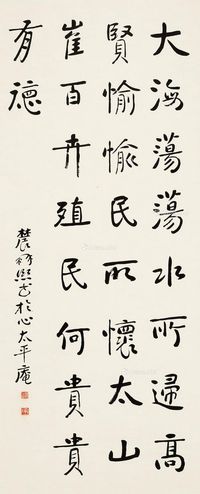 大海蕩蕩水所歸高
賢愉愉民所懷太山
崔百卉殖民何貴貴
有德
農髯熙書於心太平庵